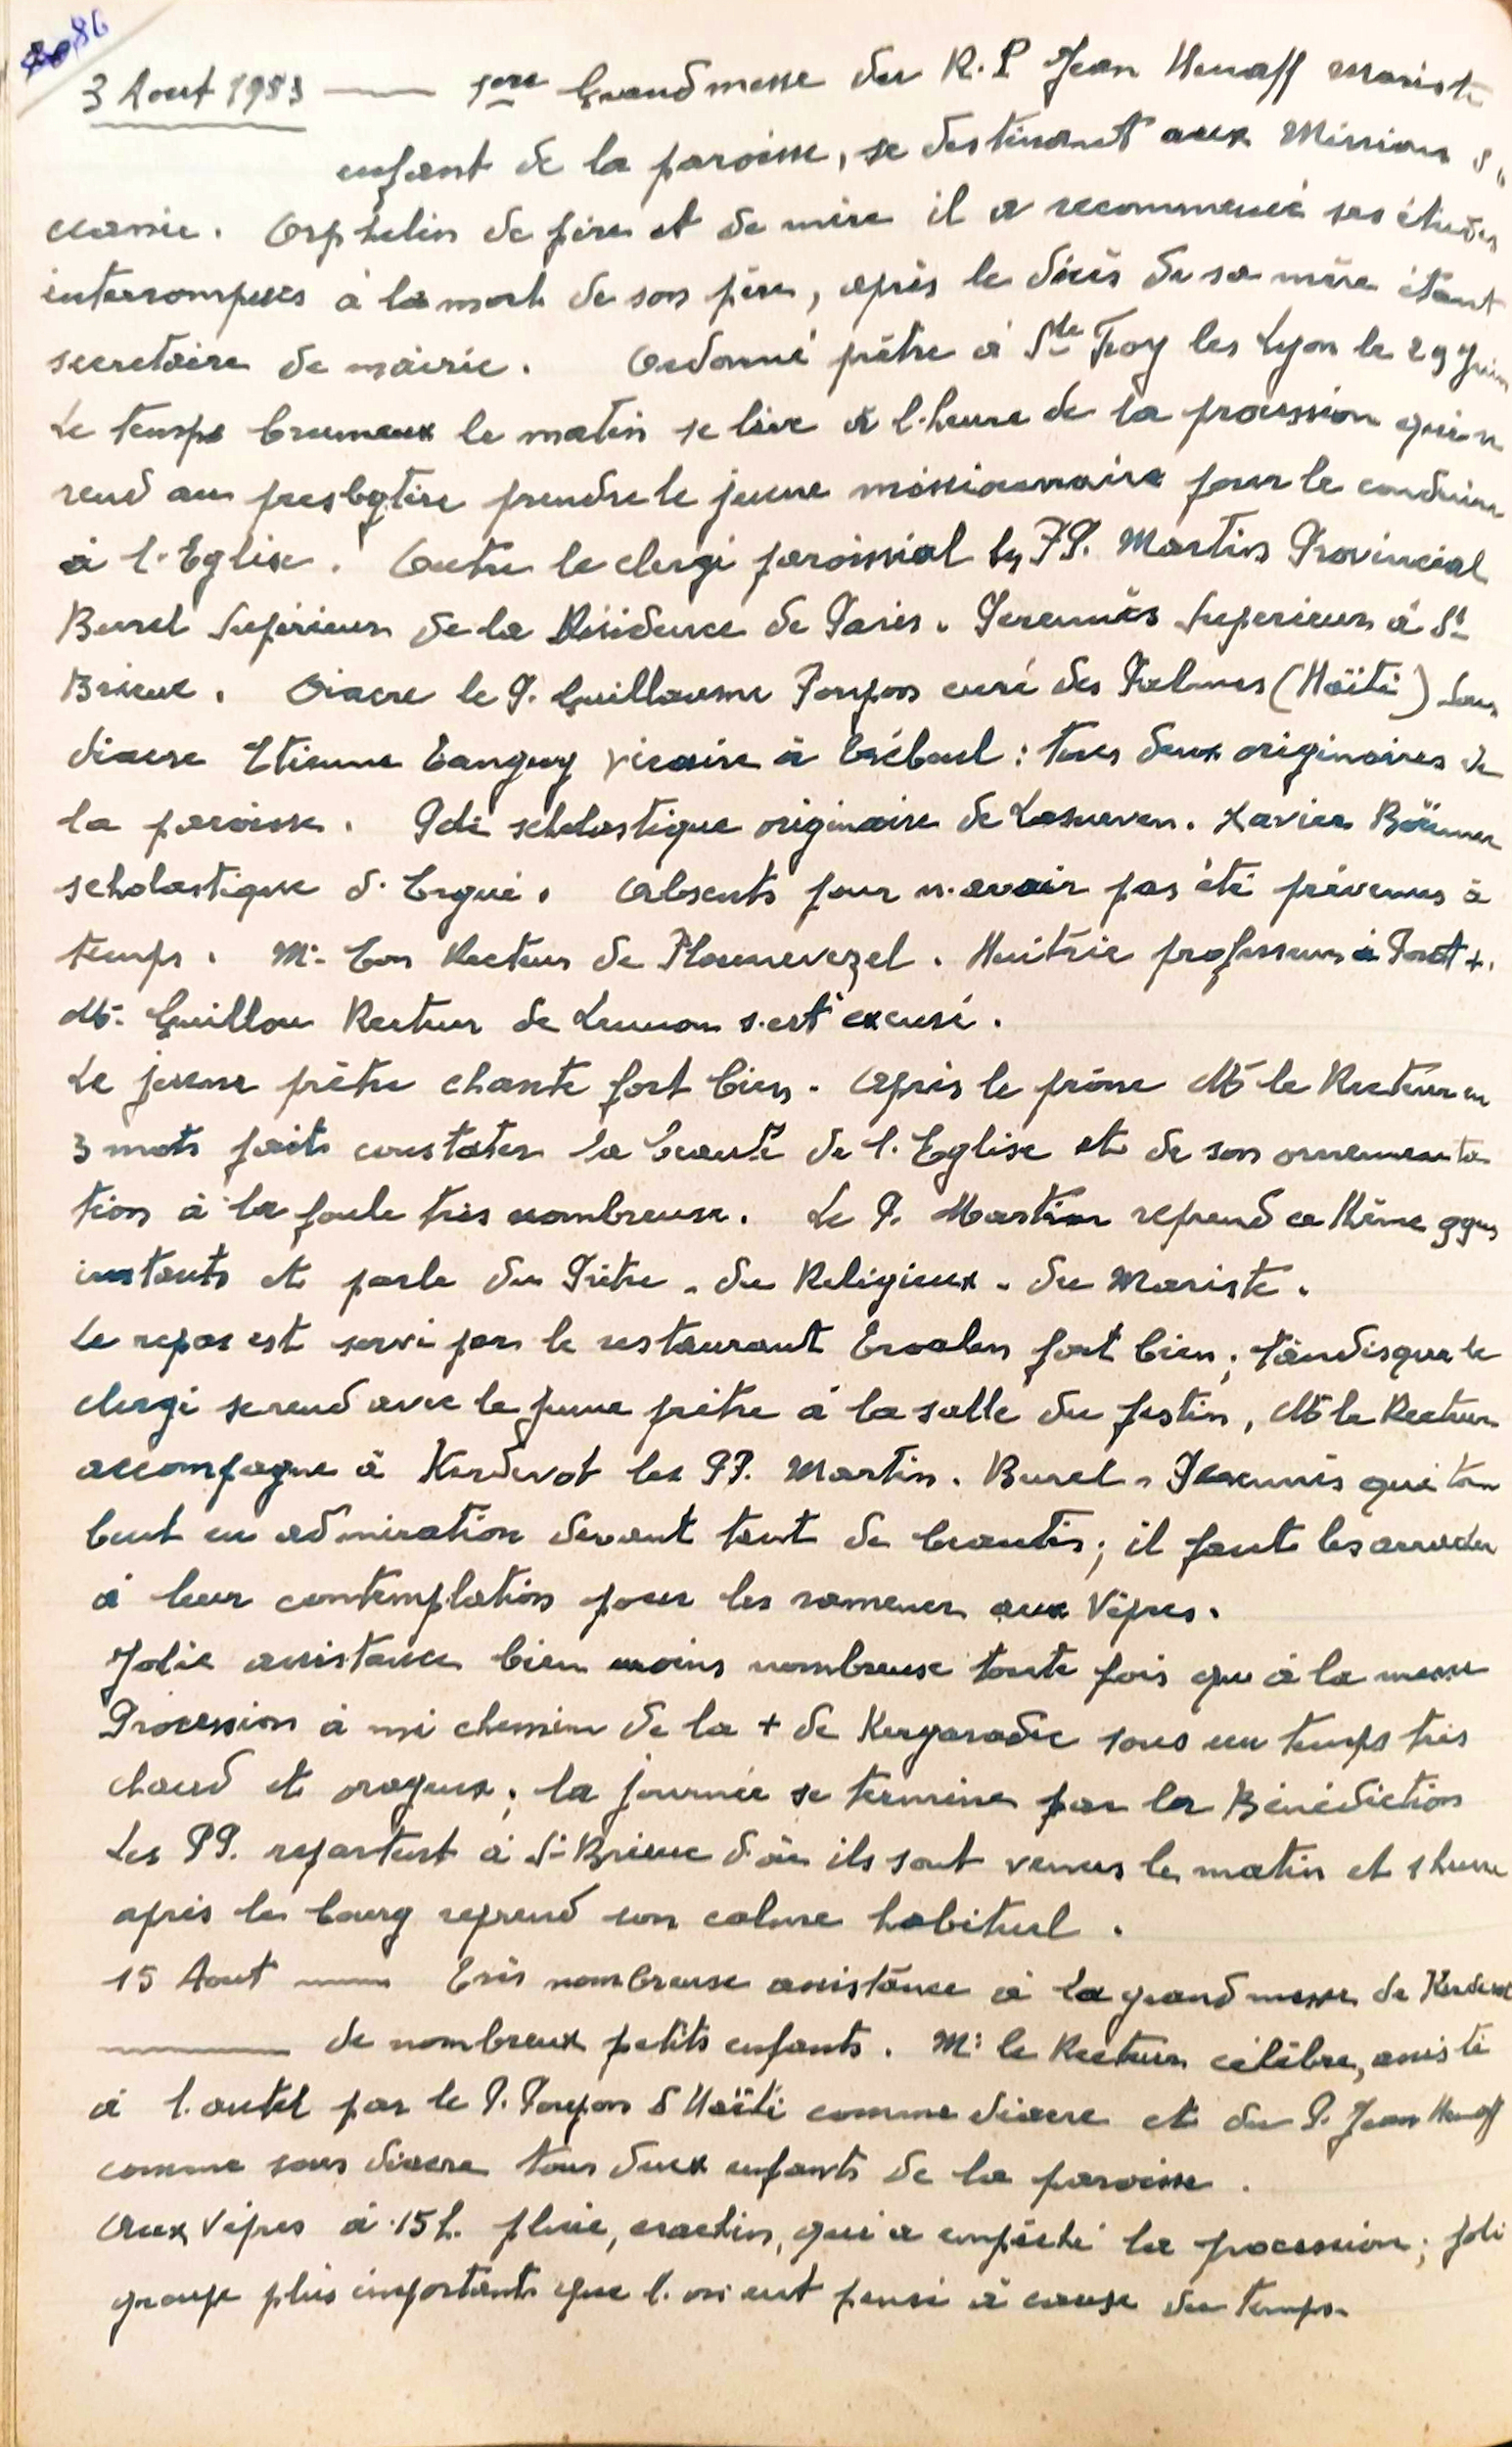 86
3 Aout 1953 — 1ere Grandmesse du R.P Jean Henaff mariste
enfant de la paroisse, se destinant aux Missions
océanie. Orphelin de père et de mère il a recommencé ses études
interrompues à la mort de son père, après le décès de sa mère étant
secretaire de mairie. Ordonné prêtre à Ste Foy les Lyon le 29 Juin
Le temps brumeux le matin se lève à l'heure de la procession qui se
rend au presbytère prendre le jeune missionnaire pour le conduire
à l'Eglise. Outre le clergé paroissial les PP. Martin Provincial
Burel Supérieur de la Résidence de Paris. Perennès Superieur à St
Brieuc. Diacre le P. Guillaume Poupon curé des Palmes (Haïti) Sous
diacre Etienne Tanguy vicaire à Tréboul : tous deux originaires de
la paroisse. scholastique originaire de Lesneven. Xavier
scholastique d'Ergué. Absents pour n'avoir pas été prévenus à
temps. Mr Recteur de Plounevezel. Huitric professeur à Pont +.
Mr Guillou Recteur de Lennon s'est excusé.
Le jeune prêtre chante fort bien. Après le prône Mr le Recteur en
3 mots fait constater la beauté de l'Eglise et de son ornementa
tion à la foule très nombreuse. Le P. Martin reprend ce thème qques
instants et parle du Prêtre - du Religieux - du Mariste.
Le repas est servi par le restaurant Troalen fort bien ; tandisque le
clergé se rend avec le jeune prêtre à la salle du festin, Mr le Recteur
accompagne à Kerdevot les PP. Martin. Burel - Perennès qui tom
bent en admiration devant tant de beautés ; il faut les arracher
à leur contemplation pour les ramener aux Vêpres.
Jolie assistance bien moins nombreuse toute fois qu'à la messe
Procession à mi chemin de la + de Kergaradec sous un temps très
chaud et orageux ; la journée se termine par la Bénédiction
Les PP. repartent à St Brieuc d'où ils sont venus le matin et 1 heure
après le bourg reprend son calme habituel.
15 Aout — Très nombreuse assistance à la grand messe de Kerdevot
de nombreux petits enfants. Mr le Recteur célèbre, assisté
à l'autel par le P. Poupon d'Haïti comme diacre et du P. Jean Henaff
comme sous diacre tous deux enfants de la paroisse.
Aux Vêpres à 15h. pluie, crachin, qui a empêché la procession ; joli
groupe plus important que l'on eut pensé à cause du temps.